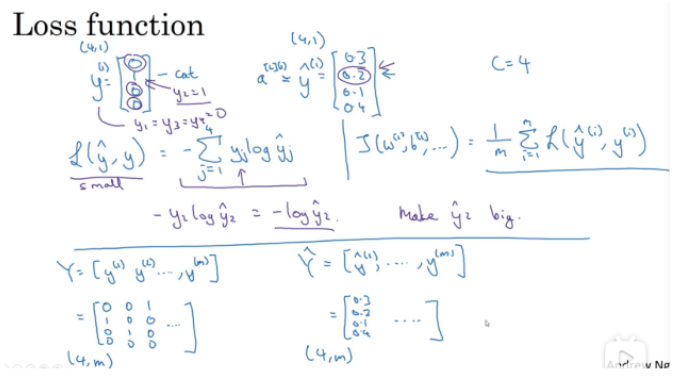 Loss function
(4,1)
y^(1) = [0 1 0 0] - cat
y₂=1
y₁ = y₃ = y₄ = 0
(4,1)
a^[L](1) = ŷ^(1) = [0.3 0.2 0.1 0.4]
C=4
L(ŷ, y) = - Σ_{j=1}^{4} y_j log ŷ_j
small
J(w^[1], b^[1], ...) = 1/m Σ_{i=1}^{m} L(ŷ^(i), y^(i))
- y₂ log ŷ₂ = - log ŷ₂. Make ŷ₂ big.
Y = [y^(1) y^(2) ..., y^(m)]
= [0 0 1 ...
1 0 0
0 1 0
0 0 0]
(4,m)
Ŷ = [ŷ^(1), ...., y^(m)]
= [0.3 ....
0.2
0.1
0.4]
(4,m)
Andrew Ng